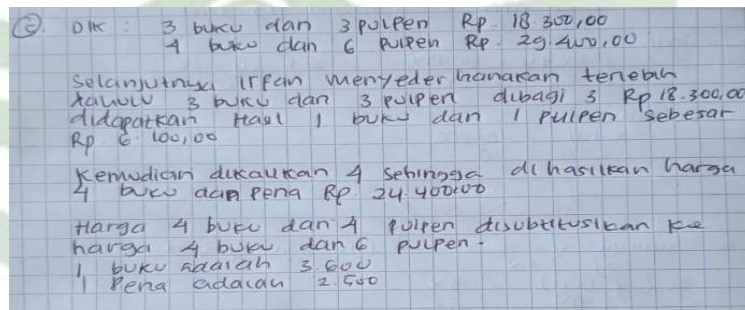 ②. DIK : 3 buku dan 3 pulpen Rp. 18.300,00
4 buku dan 6 pulpen Rp. 29.400,00
Selanjutnya irfan menyederhanakan
3 buku dan 3 pulpen dibagi 3 Rp 18.300,00
didapatkan Hasil 1 buku dan 1 pulpen sebesar
Rp. 6.100,00
Kemudian dikalikan 4 sehingga dihasilkan harga
4 buku dan pena Rp. 24.400,00
Harga 4 buku dan 4 pulpen disubtitusikan ke
harga 4 buku dan 6 pulpen.
1 buku adalah 3.600
1 Pena adalah 2.500